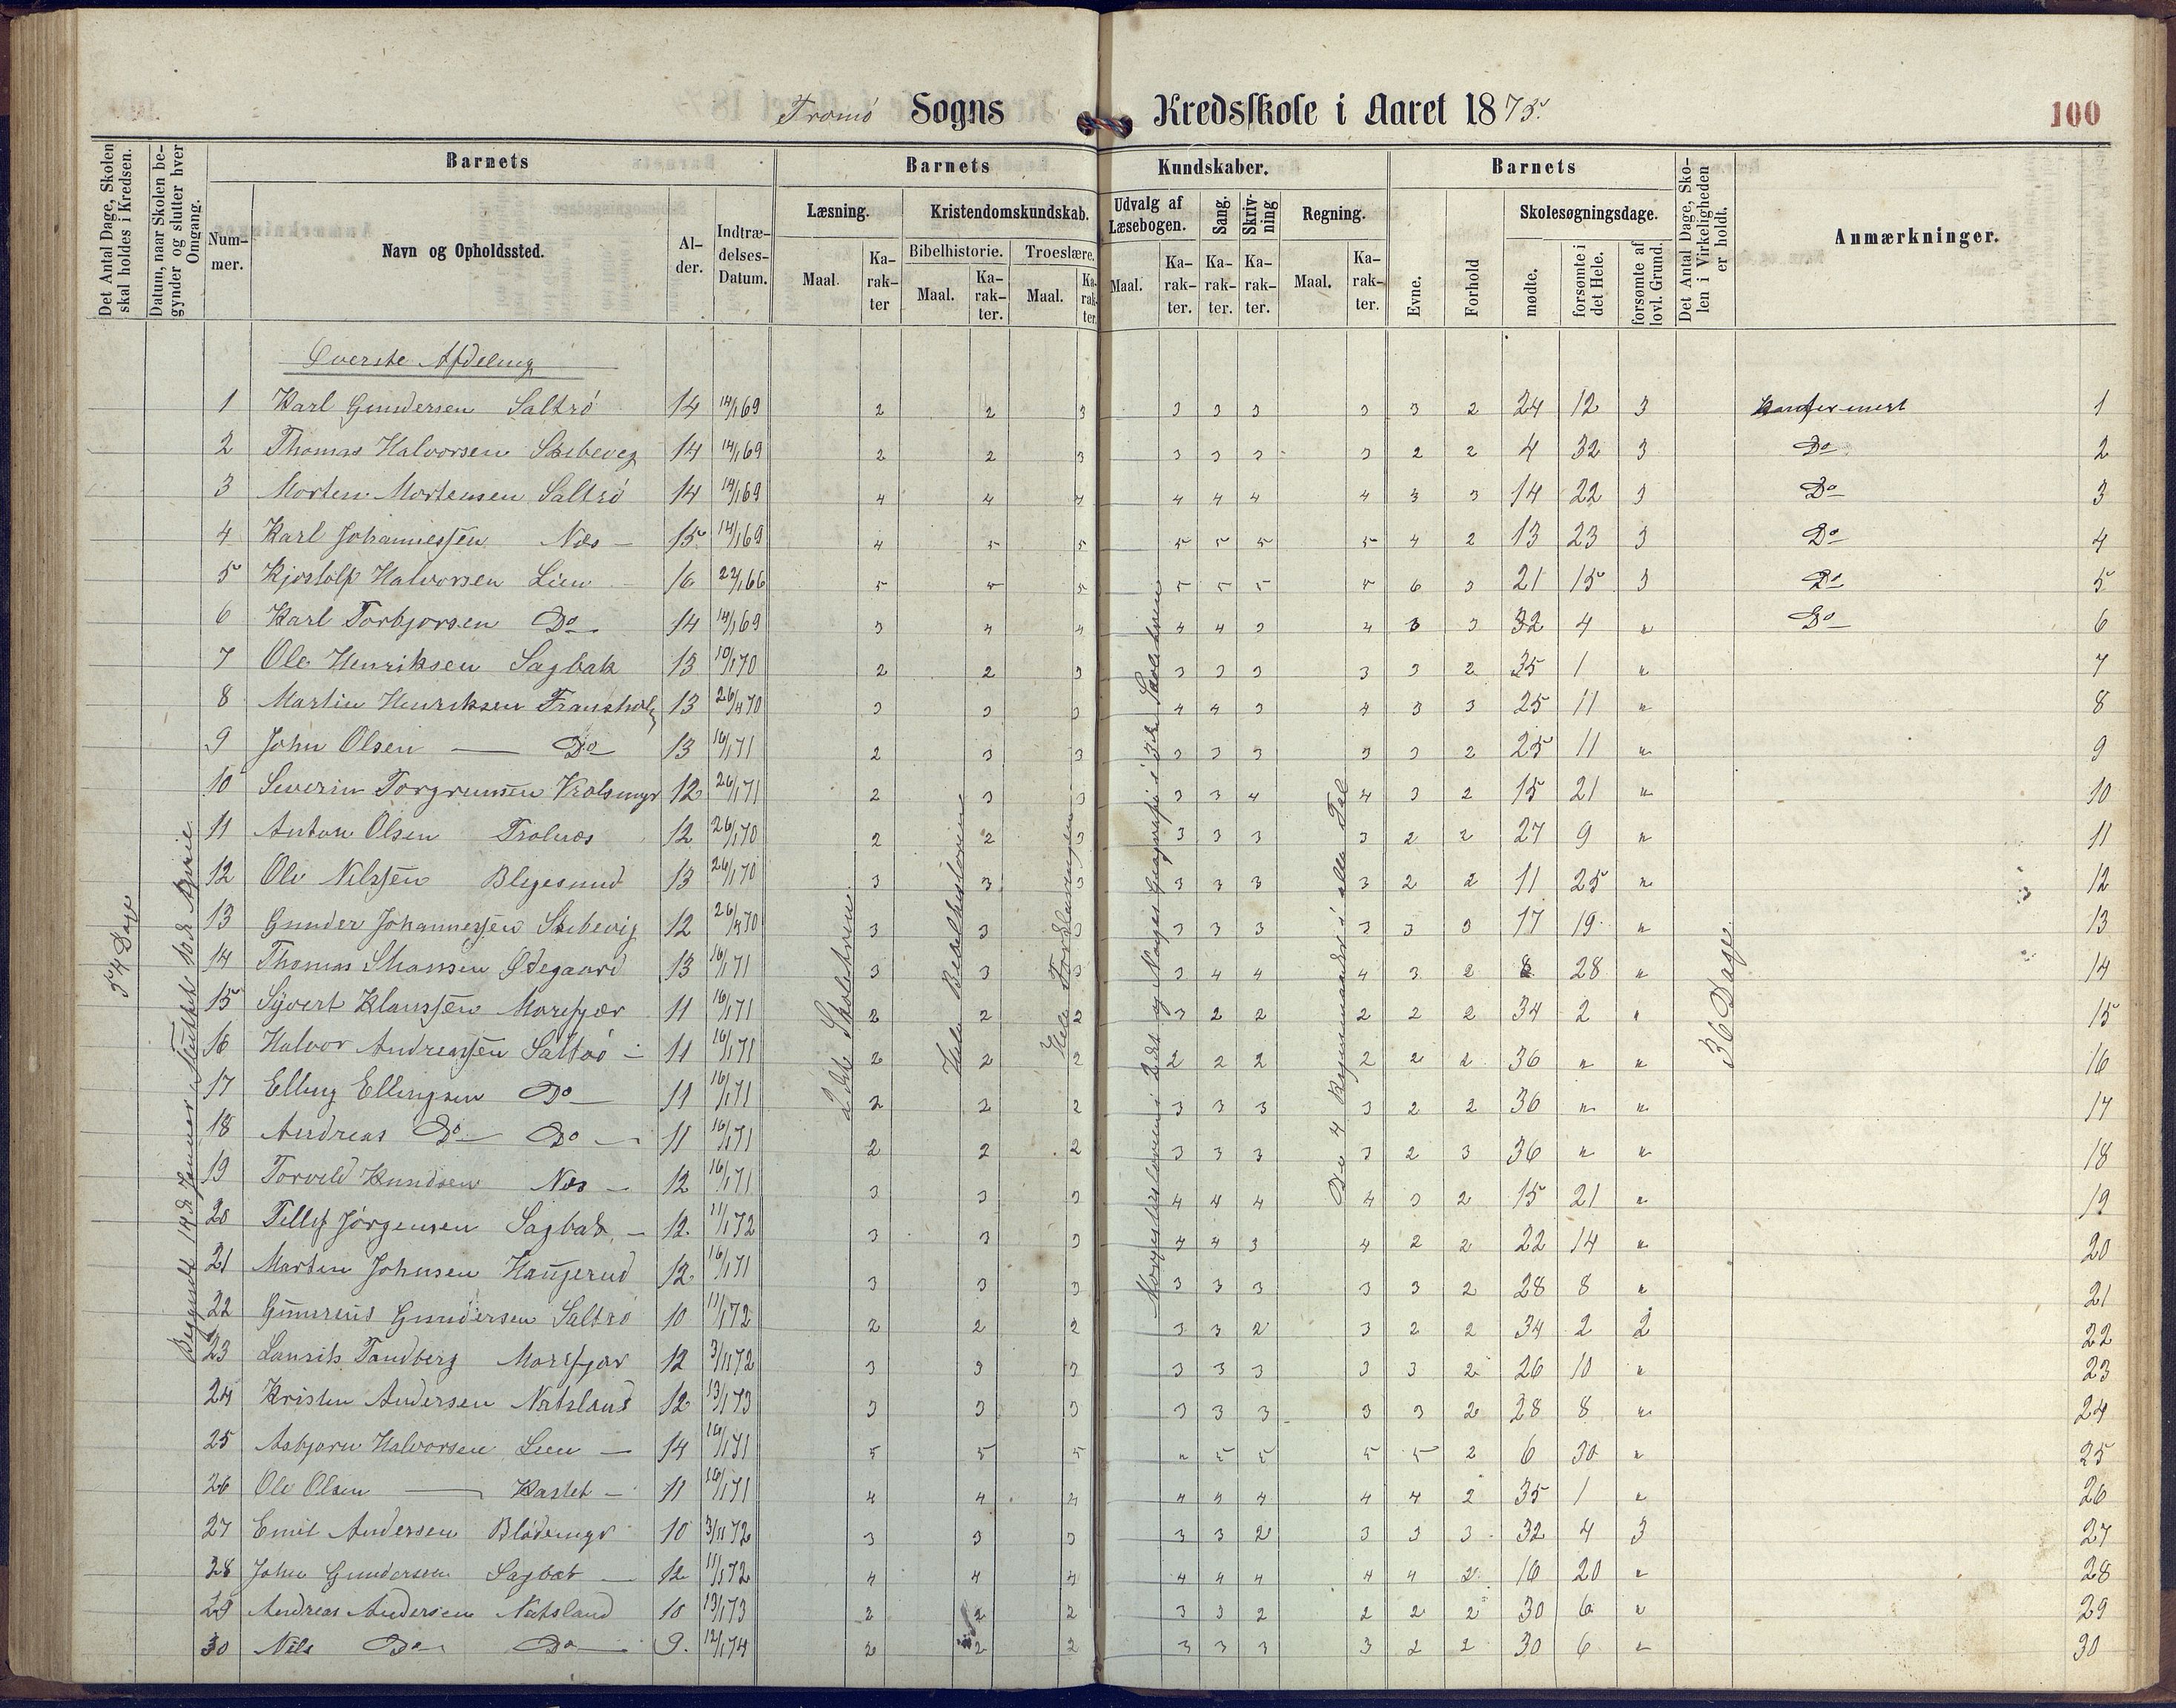 Tromö Sogns Kredsskole i Aaret 1875.
100
Det Antal Dage, Skolen skal holdes i Kredsen.
Datum, naar Skolen begynder og slutter hver Omgang.
Barnets
Nummer.
Navn og Opholdssted.
Alder.
Indtrædelses-Datum.
Barnets Kundskaber.
Læsning.
Maal.
Karakter
Kristendomskundskab.
Bibelhistorie.
Maal.
Karakter.
Troeslære.
Maal.
Karakter.
Udvalg af Læsebogen.
Maal.
Karakter.
Sang.
Karakter.
Skrivning
Karakter.
Regning.
Maal.
Karakter.
Barnets
Evne.
Forhold
Skolesøgningsdage.
mødte.
forsømte i det Hele.
forsømte af lovl. Grund.
Det Antal Dage, Skolen i Virkeligheden er holdt.
Anmærkninger.
54 Dage
Hele Bibelhistorien
De 4 Regnemaader i hele Tal
36 Dage
Överste Afdeling
1 Karl Gundersen Saltrö 14 14/1 69 2 2 3 3 3 3 3 3 2 24 12 3 Konfirmert 1
2 Thomas Halvorsen Skibevig 14 14/1 69 2 2 3 3 3 3 3 2 2 4 32 3 Do 2
3 Morten Mortensen Saltrö 14 14/1 69 4 4 4 4 4 4 4 3 3 14 22 3 Do 3
4 Karl Johannessen Næs 15 14/1 69 4 5 5 5 5 5 5 4 2 13 23 3 Do 4
5 Kjostolf Halvorsen Lien 16 22/1 66 5 5 5 5 5 5 5 6 3 21 15 3 Do 5
6 Karl Torbjorsen Do 14 14/1 69 3 4 4 4 4 3 4 3 3 32 4 " Do 6
7 Ole Henriksen Sagbak 13 10/1 70 2 2 3 3 3 3 3 3 2 35 1 " 7
8 Martin Henriksen 13 26/4 70 3 3 3 4 4 3 4 3 3 25 11 " 8
9 John Olsen — Do 13 16/1 71 2 3 3 3 3 3 3 3 2 25 11 " 9
10 Severin 12 26/1 71 2 3 3 3 3 4 4 3 2 15 21 " 10
11 Anton Olsen Trolnæs 12 26/1 70 2 2 3 3 3 3 3 2 2 27 9 " 11
12 Ole Nilssen 13 26/1 70 3 3 3 3 3 3 3 2 2 11 25 " 12
13 Gunder Johannessen Skibevig 12 26/4 70 3 3 3 3 3 3 3 3 3 17 19 " 13
14 Thomas Ødegaard 13 16/1 71 3 3 3 3 4 4 4 3 2 8 28 " 14
15 Syvert Klaussen Morefjær 11 16/1 71 2 2 2 3 2 2 2 2 2 34 2 " 15
16 Halvor Andreassen Saltrö 11 16/1 71 2 2 2 2 2 2 2 2 2 36 " " 16
17 Elling Ellingsen Do 11 16/1 71 2 2 2 3 3 3 3 2 2 36 " " 17
18 Andreas Do Do 11 16/1 71 2 2 2 3 3 3 3 2 3 36 " " 18
19 Torvild Knudsen Næs 12 16/1 71 3 3 3 4 4 4 4 3 2 15 21 " 19
20 Tellef Jörgensen Sagbak 12 11/1 72 3 3 3 4 4 3 4 2 2 22 14 " 20
21 Martin Johnsen Haugerud 12 16/1 71 3 3 3 3 3 3 3 3 2 28 8 " 21
22 Gundersen Saltrö 10 11/1 72 2 2 2 3 3 2 3 2 2 34 2 2 22
23 Laurits Tandberg Morefjær 12 3/11 72 3 3 3 3 3 3 3 3 2 26 10 " 23
24 Kristen Andersen Natsland 12 13/1 73 3 3 3 3 3 3 3 3 2 28 8 " 24
25 Asbjorn Halvorsen Lien 14 16/1 71 5 5 5 " 5 5 5 5 2 6 30 " 25
26 Ole Olsen — Kastet 11 16/1 71 4 4 4 4 4 4 4 4 2 35 1 " 26
27 Emil Andersen Blödemyr 10 3/11 72 3 3 3 3 3 2 3 3 3 32 4 3 27
28 John Gundersen Sagbak 12 11/1 72 4 4 4 4 4 4 4 4 2 16 20 " 28
29 Andreas Andersen Natsland 10 13/1 73 2 2 2 3 3 2 2 2 2 30 6 " 29
30 Nils Do Do 9 12/1 74 2 2 2 3 3 3 3 2 2 30 6 " 30